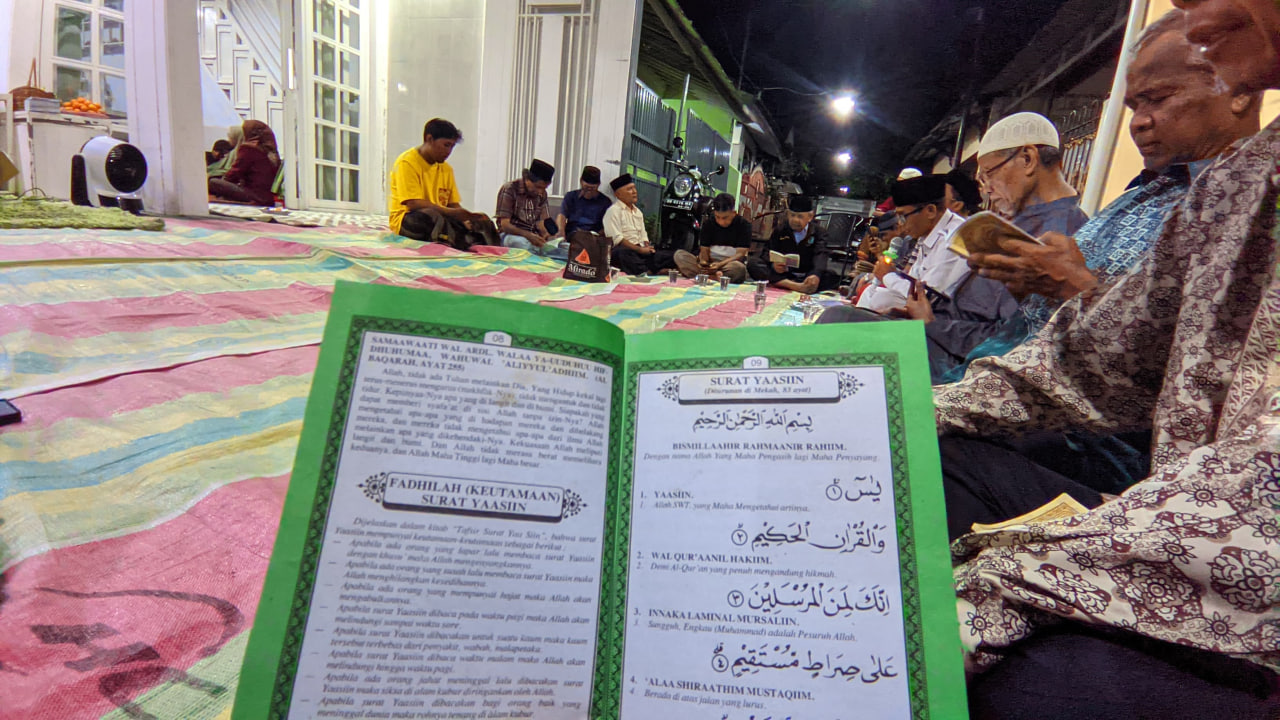 Mirado
08
SAMAAWAATI WAL ARDL, WALAA YA-UUDUHUU HIF
DHUHUMAA, WAHUWAL 'ALIYYUL'ADHIIM. (AL
BAQARAH, AYAT 255)
Allah, tidak ada Tuhan melainkan Dia, Yang Hidup kekal lagi
terus-menerus mengurus (makhluk Nya), tidak mengantuk dan tidak
tidur. Kepunyaan-Nya apa yang di langit dan di bumi. Siapakah yang
dapat memberi syafa'at di sisi Allah tanpa izin-Nya? Allah
mengetahui apa-apa yang di hadapan mereka dan dibelakang
mereka, dan mereka tidak mengetahui apa-apa dari ilmu Allah
melainkan apa yang dikehendaki-Nya. Kekuasaan Allah meliputi
langit dan bumi. Dan Allah tidak merasa berat memelihara
keduanya, dan Allah Maha Tinggi lagi Maha besar.
FADHILAH (KEUTAMAAN)
SURAT YAASIIN
Dijelaskan dalam kitab "Tafsir Surat Yaa Siin", bahwa surat
Yaasiin mempunyai keutamaan-keutamaan sebagai berikut :
– Apabila ada orang yang lapar lalu membaca surat Yaasiin
dengan khusu' maka Allah mengenyangkannya.
– Apabila ada orang yang susah lalu membaca surat Yaasiin maka
Allah menghilangkan kesedihannya.
– Apabila ada orang yang mempunyai hajat maka Allah akan
mengabulkannya.
– Apabila surat Yaasiin dibaca pada waktu pagi maka Allah akan
melindungi sampai waktu sore.
– Apabila surat Yaasiin dibacakan untuk suatu kaum maka kaum
tersebut terbebas dari penyakit, wabah, malapetaka.
– Apabila surat Yaasiin dibaca waktu malam maka Allah akan
melindungi hingga waktu pagi.
– Apabila ada orang jahat meninggal lalu dibacakan surat
Yaasiin maka siksa di alam kubur diringankan oleh Allah.
– Apabila surat Yaasiin dibacakan bagi orang baik yang
meninggal dunia maka rohnya tenang di alam kubur.
09
SURAT YAASIIN
(Diturunan di Mekah, 83 ayat)
بِسْمِ اللهِ الرَّحْمٰنِ الرَّحِيْمِ
BISMILLAAHIR RAHMAANIR RAHIIM.
Dengan nama Allah Yang Maha Pengasih lagi Maha Penyayang.
يٰسۤ ۝١
1. YAASIIN.
1. Allah SWT. yang Maha Mengetahui artinya.
وَالْقُرْاٰنِ الْحَكِيْمِ ۝٢
2. WAL QUR'AANIL HAKIIM.
2. Demi Al-Qur'an yang penuh mengandung hikmah.
اِنَّكَ لَمِنَ الْمُرْسَلِيْنَ ۝٣
3. INNAKA LAMINAL MURSALIIN.
3. Sungguh, Engkau (Muhammad) adalah Pesuruh Allah.
عَلٰى صِرَاطٍ مُّسْتَقِيْمٍ ۝٤
4. 'ALAA SHIRAATHIM MUSTAQIIM.
4 Berada di atas jalan yang lurus.